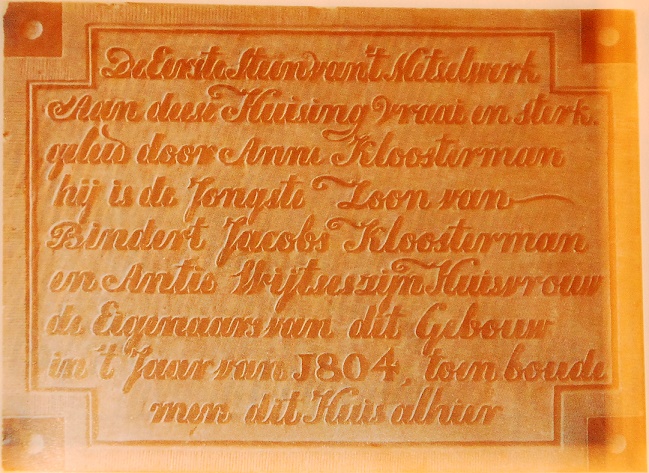 De Eerste Steen van't Metselwerk
Aan dese Huising vraai en sterk.
geleid door Anne Kloosterman
hij is de Jongste Zoon van
Bindert Jacobs Kloosterman
en Antie Wijtses zijn Huisvrouw
de Eigenaars van dit Gebouw
in 't Jaar van 1804, toen boude
men dit Huis alhier